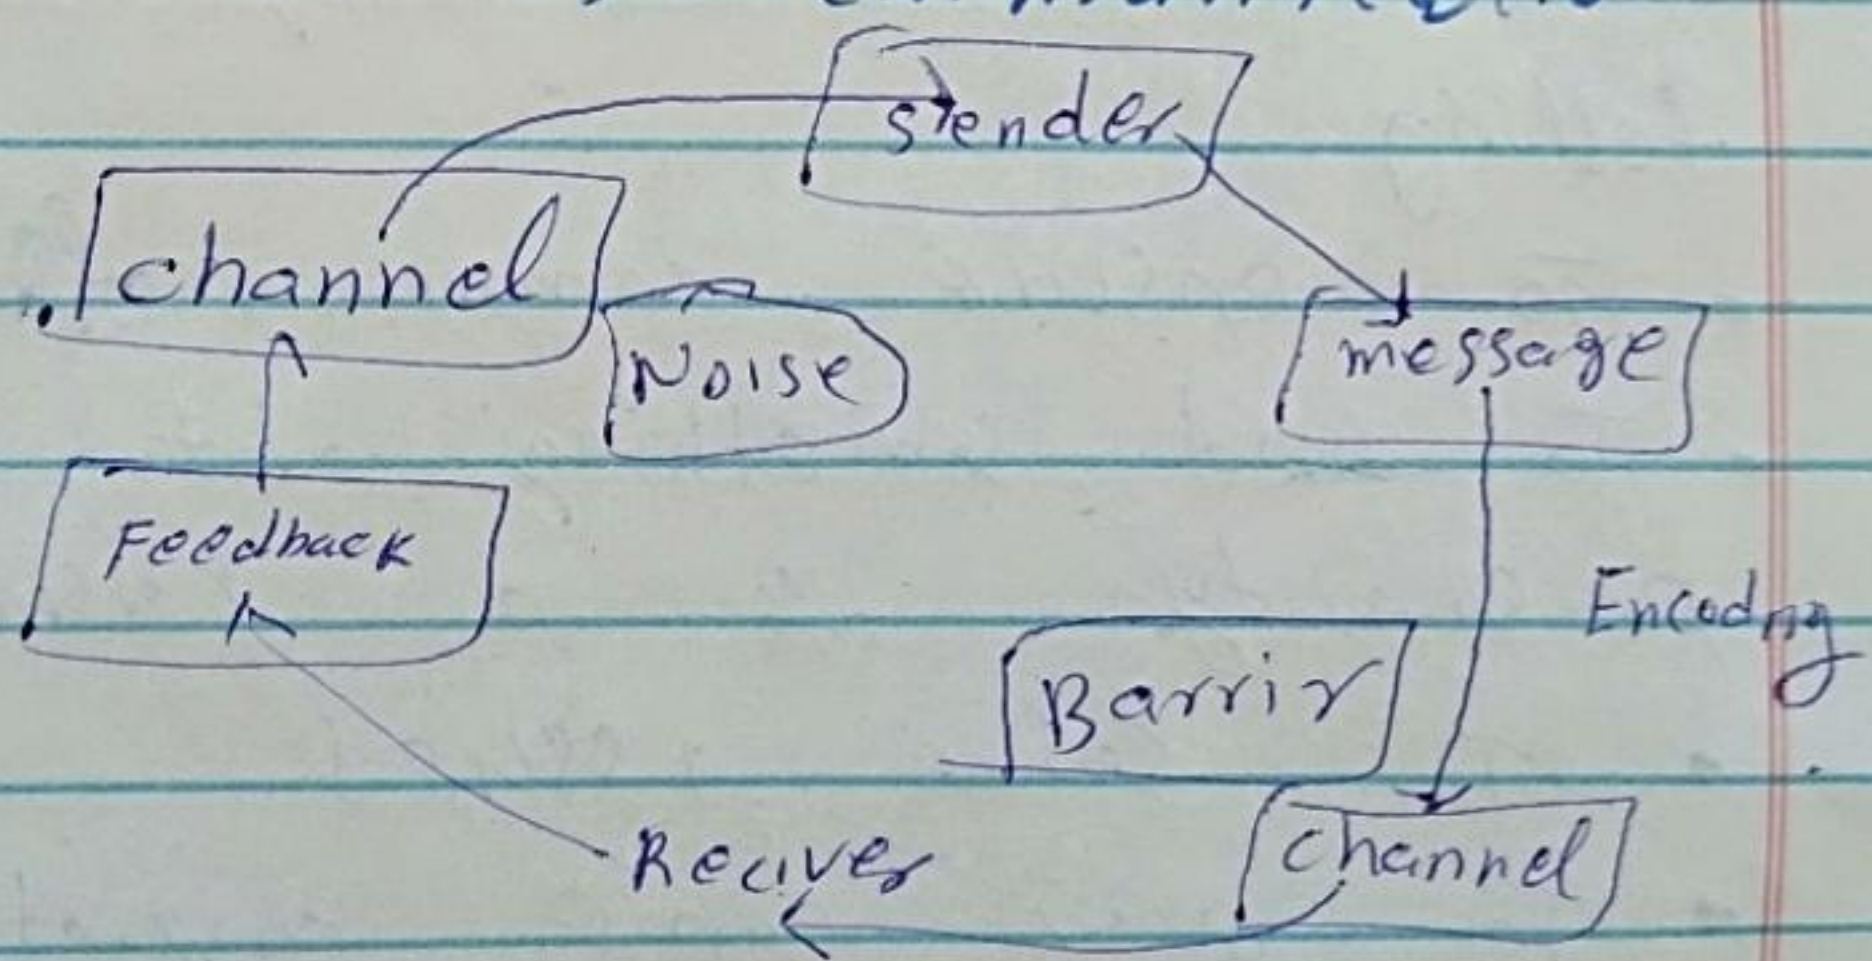 Sender
channel
Noise
message
Feedback
Encodng
Barrir
Reciver
channel